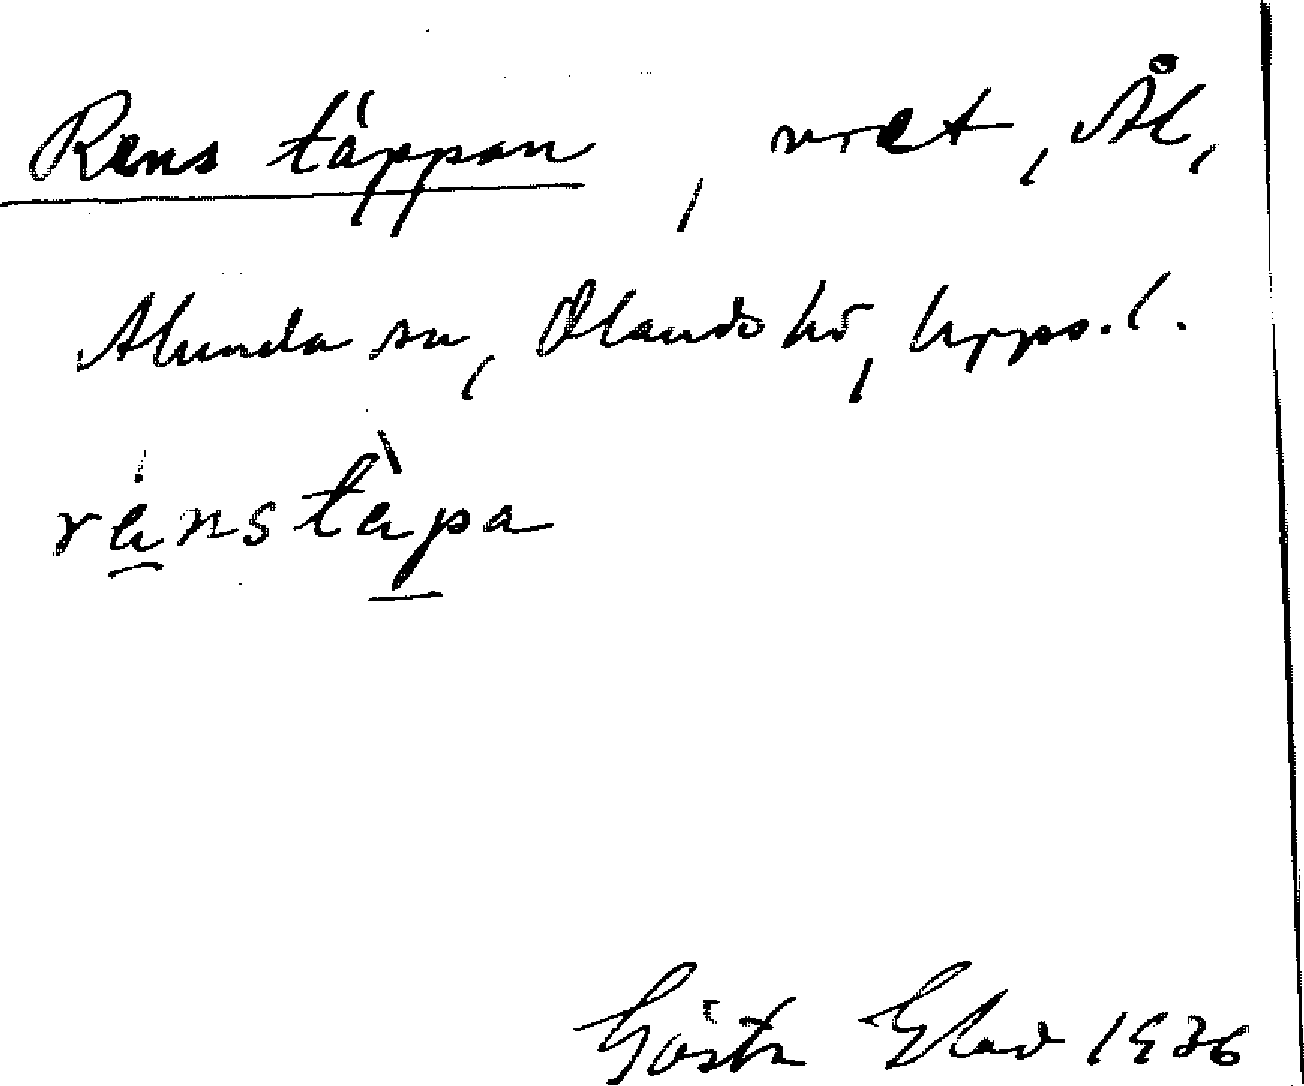 Rens täppan, vret, Ål,
Alunda sn, Olands hd, Upps. l.
renstepa
Gösta Elov 1936